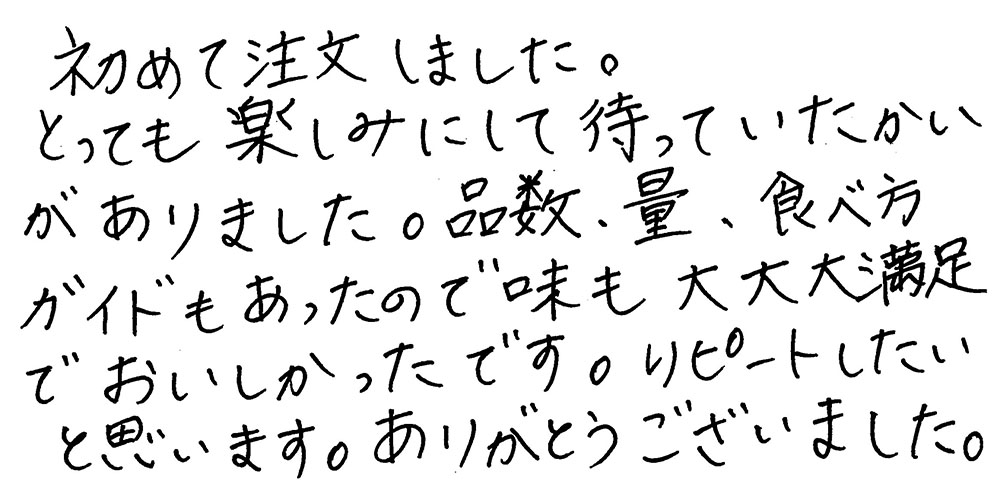 初めて注文しました。
とっても楽しみにして待っていたかい
がありました。品数、量、食べ方
ガイドもあったので味も大大大満足
でおいしかったです。リピートしたい
と思います。ありがとうございました。